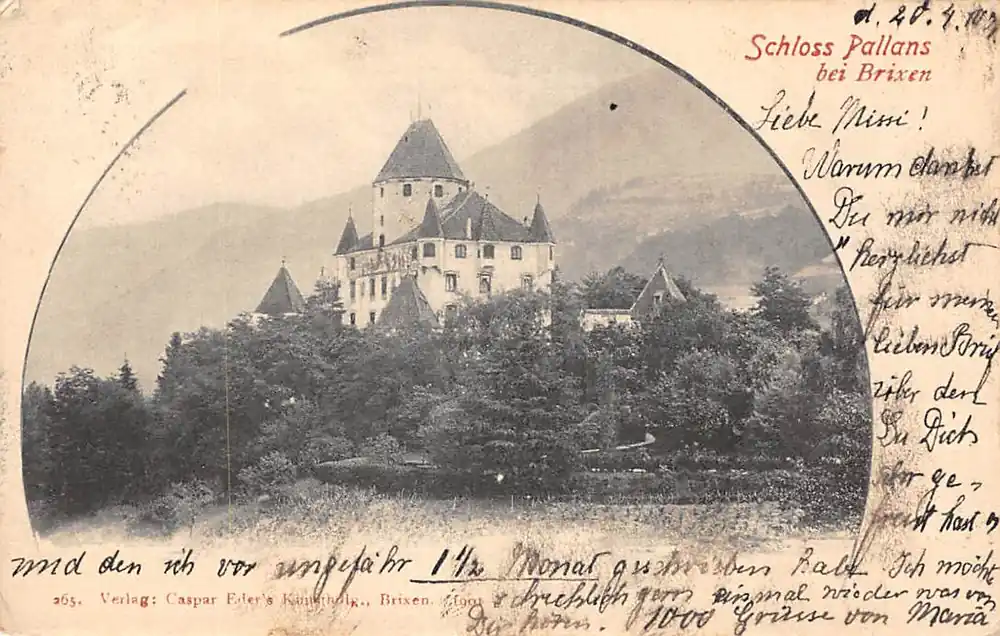 d. 28. 4. 107
Schloss Pallans
bei Brixen
Liebe Missi!
Warum dankst
Du mir nicht
"herzlichst
für meinen
lieben Brief
den
Du Dich
ge=
freut hast
und den ich vor ungefähr 1½ Monat geschrieben habe Ich möcht
265. Verlag: Caspar Eder's Kunsthdlg., Brixen. 1901
schrecklich gern einmal wieder was von
Dir hören. 1000 Grüsse von Maria